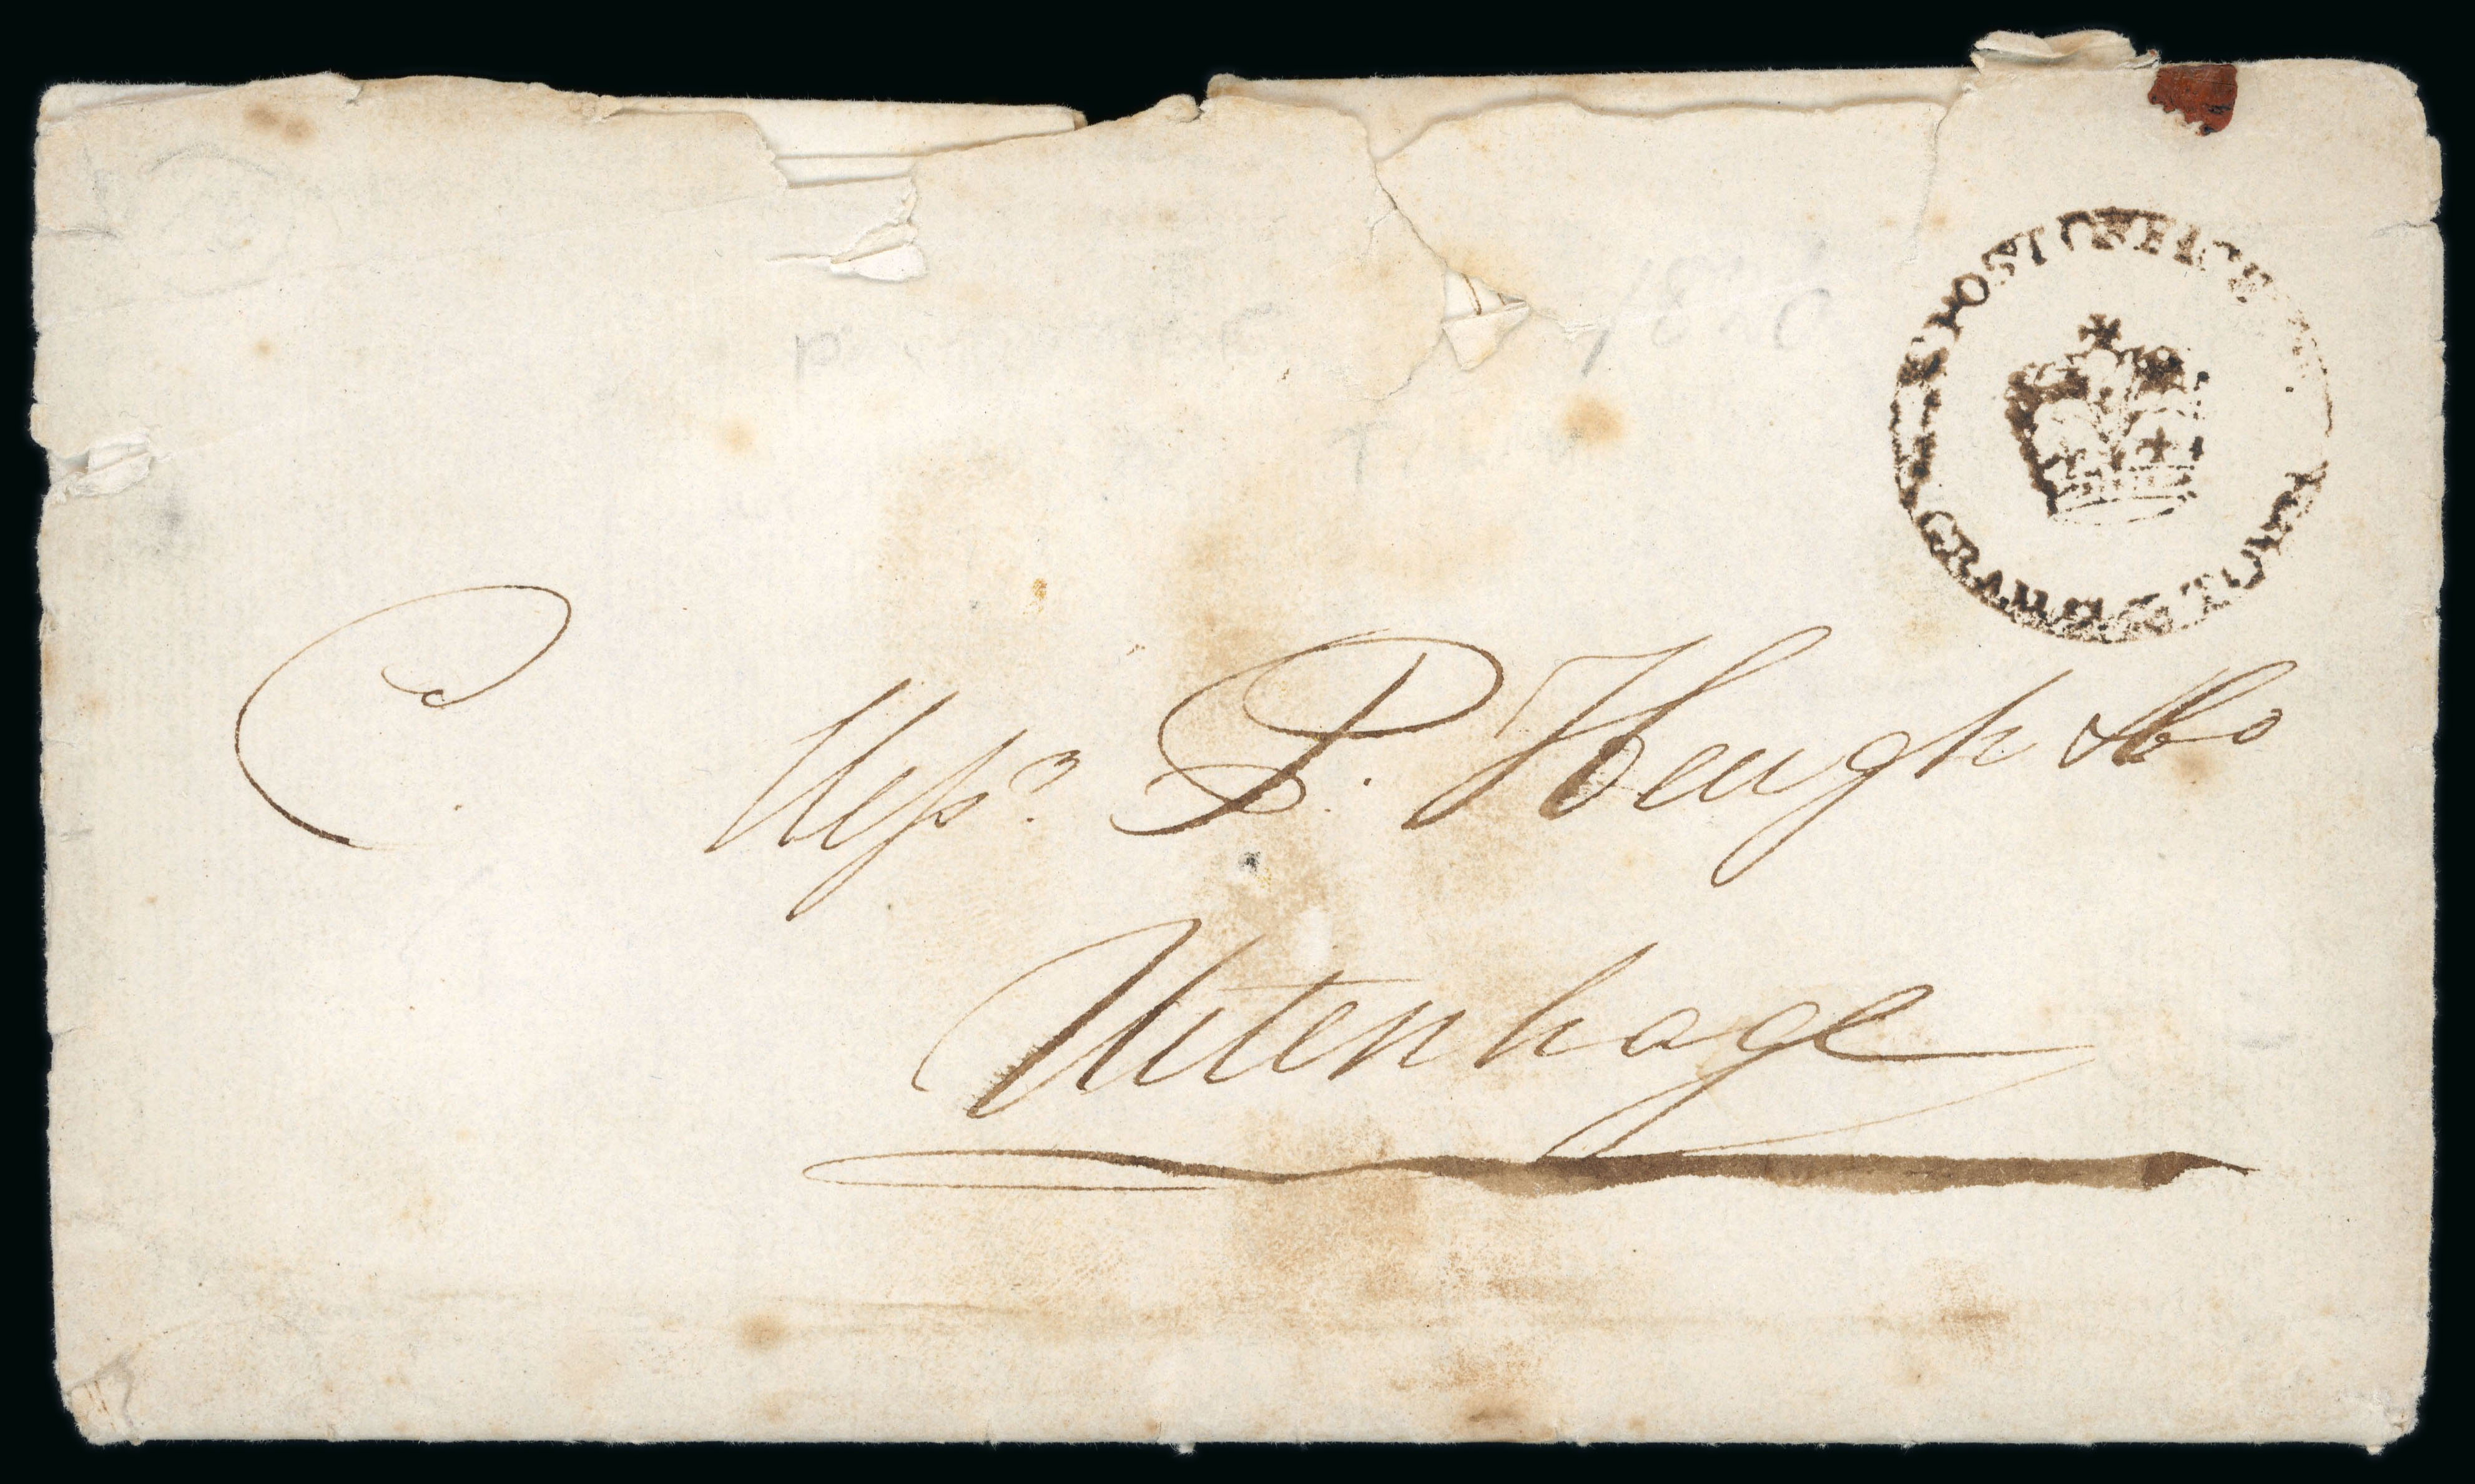 POST OFFICE
GRAHAM'S TOWN
Messrs. P. Heugh & Co
Uitenhage